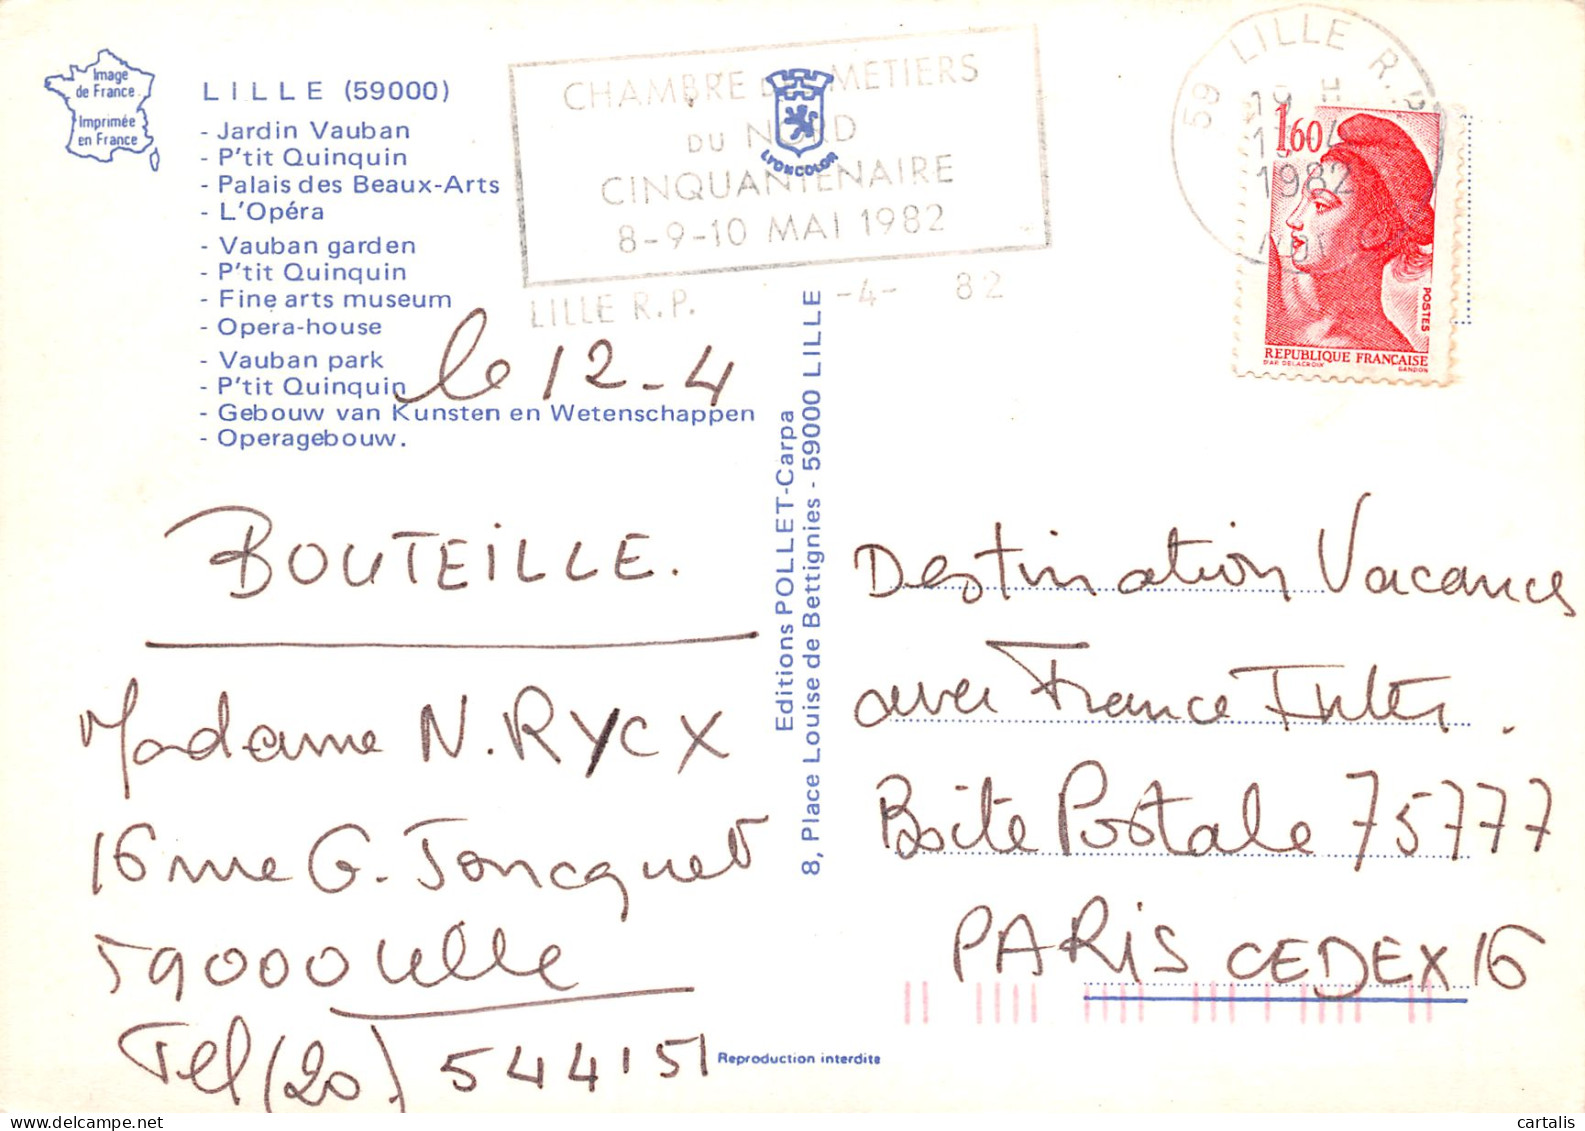 Image
de France
Imprimée
en France
LILLE (59000)
- Jardin Vauban
- P'tit Quinquin
- Palais des Beaux-Arts
- L'Opéra
- Vauban garden
- P'tit Quinquin
- Fine arts museum
- Opera-house
- Vauban park
- P'tit Quinquin
- Gebouw van Kunsten en Wetenschappen
- Operagebouw.
CHAMBRE MÉTIERS
DU NORD
CINQUANTENAIRE
8-9-10 MAI 1982
LILLE R.P. -4- 82
LYONCOLOR
59 LILLE R.P.
1982
1,60
POSTES
REPUBLIQUE FRANCAISE
D'AP. DELACROIX GANDON
le 12-4
BOUTEILLE.
Madame N. RYCX
16 rue G. Joncquet
59000 Lille
Tel (20) 544151
Editions POLLET-Carpa
8, Place Louise de Bettignies - 59000 LILLE
Destination Vacances
avec France Inter.
Boite Postale 75777
PARIS CEDEX 16
Reproduction interdite
cartalis